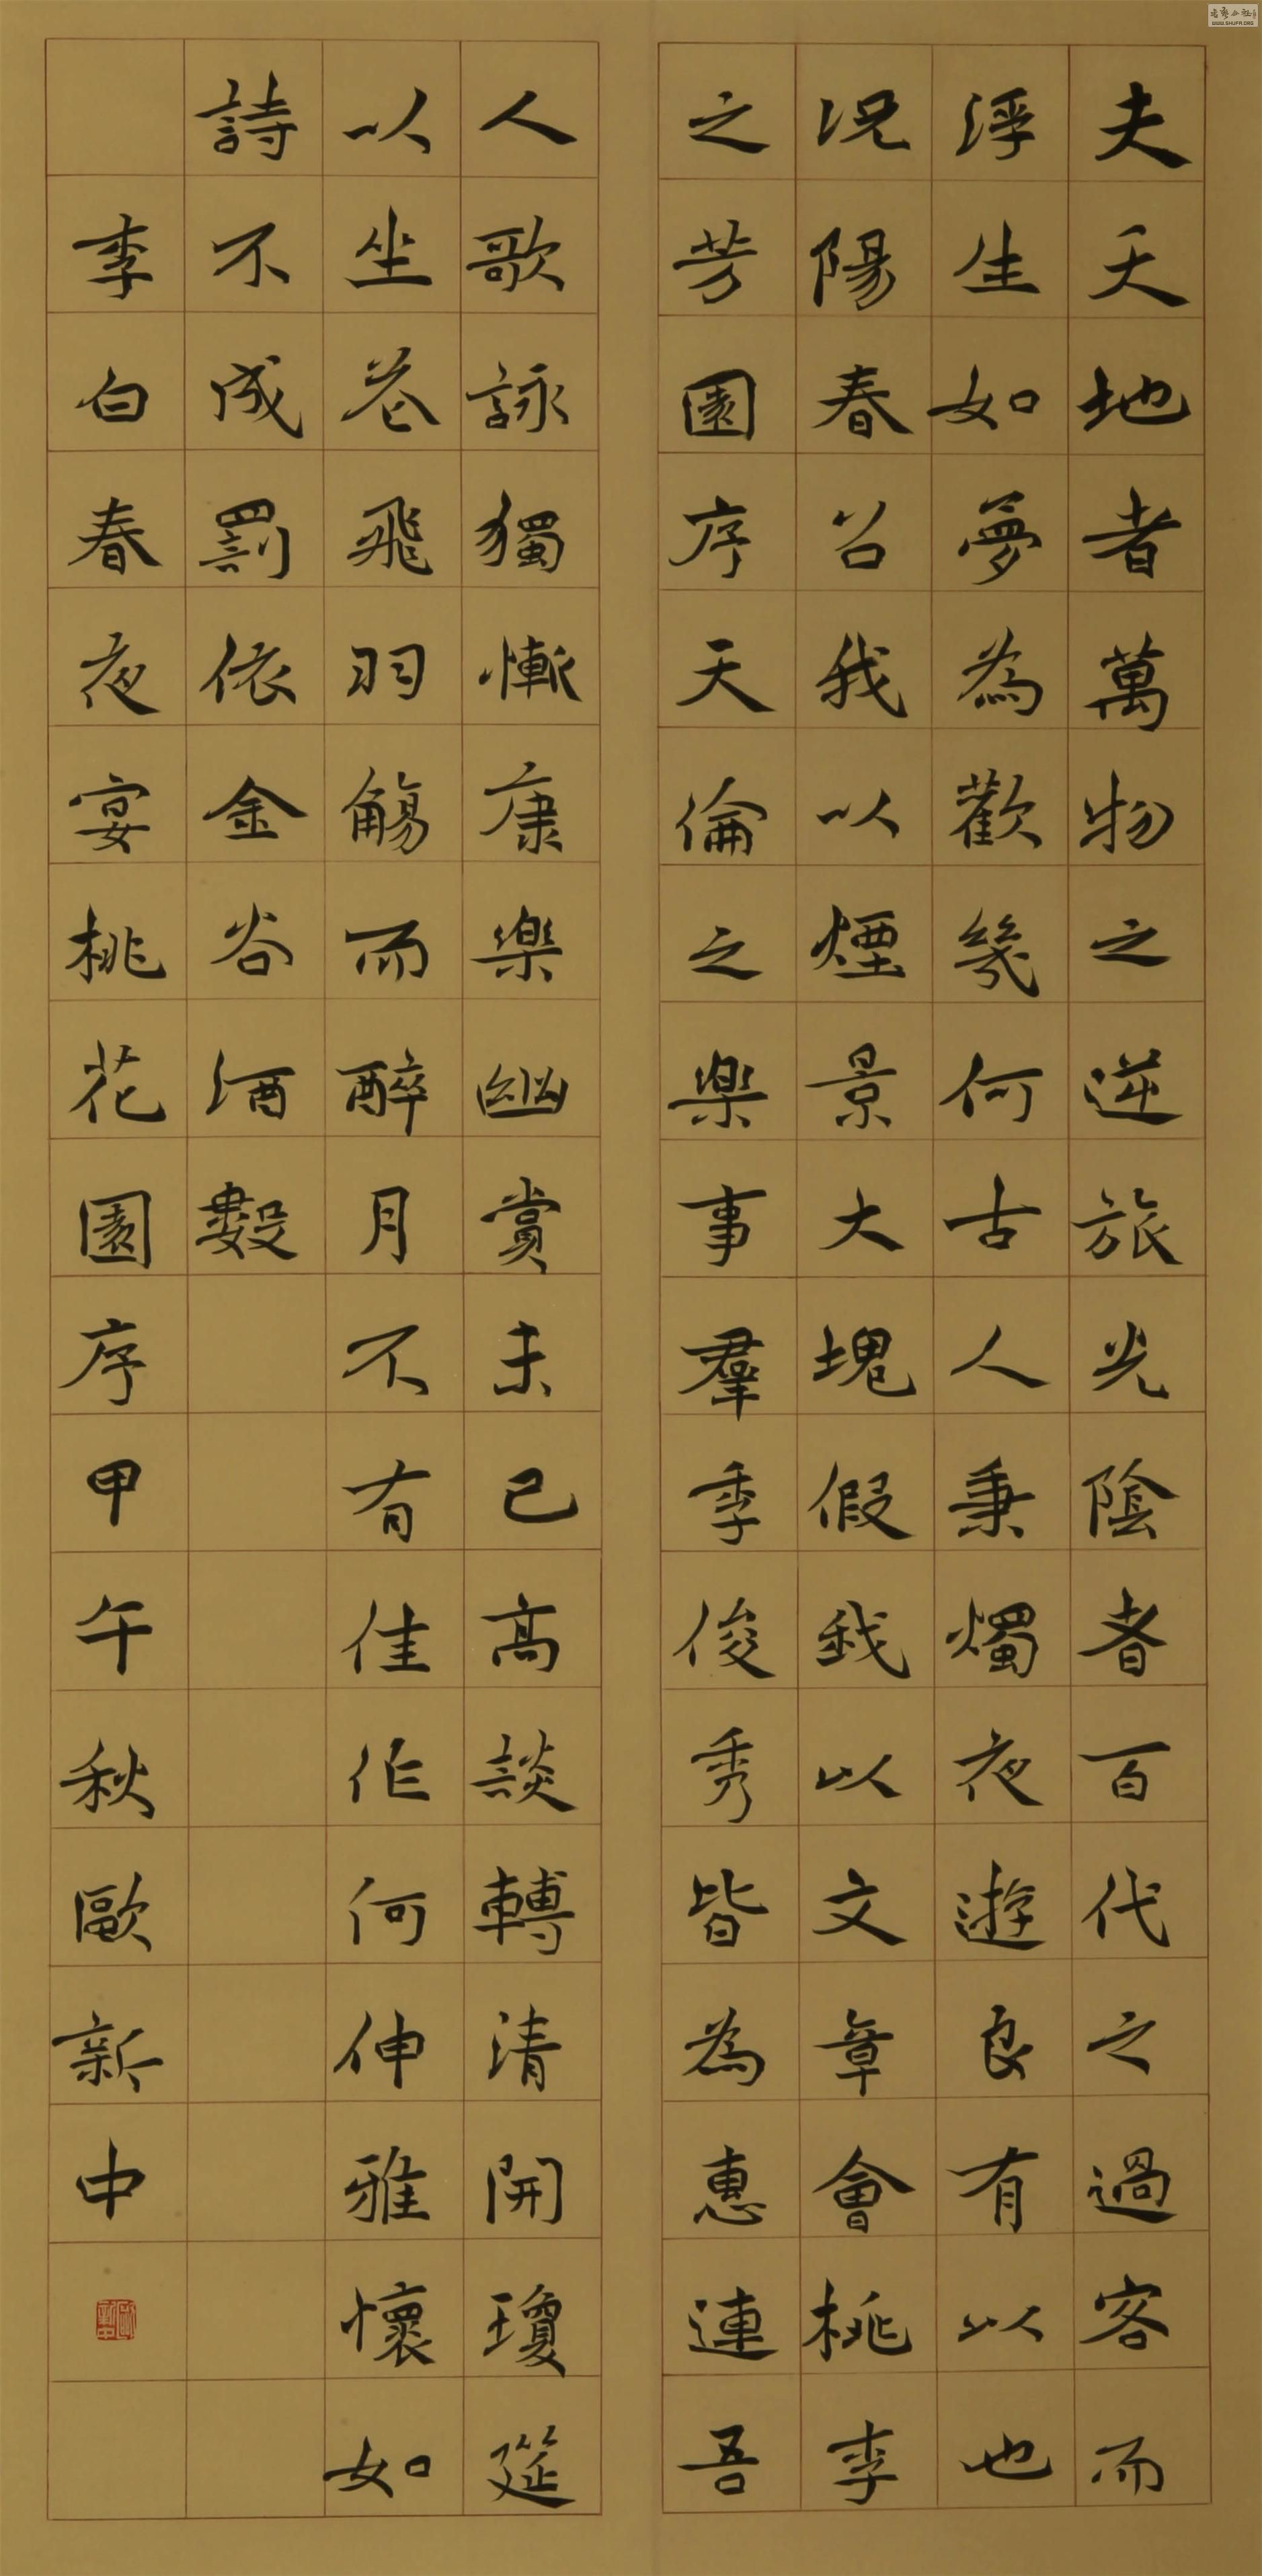 夫天地者萬物之逆旅光陰者百代之過客而
浮生如夢為歡幾何古人秉燭夜遊良有以也
況陽春召我以煙景大塊假我以文章會桃李
之芳園序天倫之樂事羣季俊秀皆為惠連吾
人歌詠獨慚康樂幽賞未已高談轉清開瓊筵
以坐花飛羽觴而醉月不有佳作何伸雅懷如
詩不成罰依金谷酒數
李白春夜宴桃花園序甲午秋歐新中
WWW.SHUFA.ORG